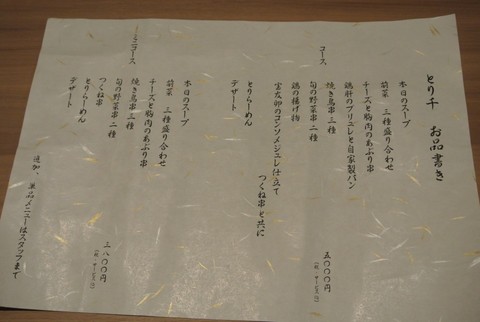 とり千 お品書き
コース
本日のスープ
前菜 三種盛り合わせ
チーズと胸肉のあぶり串
鶏肝のブリュレと自家製パン
焼き鳥串 三種
旬の野菜串 二種
鶏の揚げ物
宝友卵のコンソメジュレ仕立て
つくね串と共に
とりらーめん
デザート
五〇〇〇円
(税・サービス込)
コース
本日のスープ
前菜 三種盛り合わせ
チーズと胸肉のあぶり串
焼き鳥串 三種
旬の野菜串 二種
つくね串
とりらーめん
デザート
三八〇〇円
(税・サービス込)
追加、単品メニューはスタッフまで